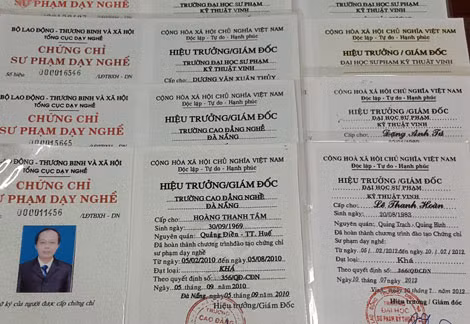 TRƯỜNG ĐẠI HỌC SƯ PHẠM
KỸ THUẬT VINH
BỘ LAO ĐỘNG - THƯƠNG BINH VÀ XÃ HỘI
TỔNG CỤC DẠY NGHỀ
CHỨNG CHỈ
SƯ PHẠM DẠY NGHỀ
Số hiệu
/LĐTBXH - DN
CỘNG HÒA XÃ HỘI CHỦ NGHĨA VIỆT NAM
Độc lập - Tự do - Hạnh phúc
HIỆU TRƯỞNG/GIÁM ĐỐC
TRƯỜNG ĐẠI HỌC SƯ PHẠM
KỸ THUẬT VINH
Cấp cho: DƯƠNG VĂN XUÂN THỦY
CỘNG HÒA XÃ HỘI CHỦ NGHĨA VIỆT NAM
Độc lập - Tự do - Hạnh phúc
HIỆU TRƯỞNG / GIÁM ĐỐC
ĐẠI HỌC SƯ PHẠM KỸ THUẬT VINH
BỘ LAO ĐỘNG - THƯƠNG BINH VÀ XÃ HỘI
TỔNG CỤC DẠY NGHỀ
CHỨNG CHỈ
SƯ PHẠM DẠY NGHỀ
/LĐTBXH - DN
CỘNG HÒA XÃ HỘI CHỦ NGHĨA VIỆT NAM
Độc lập - Tự do - Hạnh phúc
HIỆU TRƯỞNG/GIÁM ĐỐC
TRƯỜNG CAO ĐẲNG NGHỀ
ĐÀ NẴNG
CỘNG HÒA XÃ HỘI CHỦ NGHĨA VIỆT NAM
Độc lập - Tự do - Hạnh phúc
HIỆU TRƯỞNG/GIÁM ĐỐC
ĐẠI HỌC SƯ PHẠM
KỸ THUẬT VINH
Đặng Anh Tú
ĐỘNG - THƯƠNG BINH VÀ XÃ HỘI
TỔNG CỤC DẠY NGHỀ
CHỨNG CHỈ
SƯ PHẠM DẠY NGHỀ
/LĐTBXH - DN
ký của người được cấp chứng chỉ
CỘNG HÒA XÃ HỘI CHỦ NGHĨA VIỆT NAM
Độc lập - Tự do - Hạnh phúc
HIỆU TRƯỞNG/GIÁM ĐỐC
TRƯỜNG CAO ĐẲNG NGHỀ
ĐÀ NẴNG
Cấp cho: HOÀNG THANH TÂM
Sinh ngày: 30/09/1969
Nguyên quán: Quảng Điền - TT. Huế
Đã hoàn thành chương trình đào tạo Chứng chỉ
sư phạm dạy nghề
Từ ngày: 05/02/2010 đến ngày: 05/08/2010
Đạt loại: KHÁ
Theo quyết định số: 366/QĐ-CĐN
05 . 09 . 2010
Đà Nẵng, ngày 05 tháng 09 năm 2010
Hiệu trưởng/Giám đốc
TRƯỜNG
CAO ĐẲNG
CỘNG HÒA XÃ HỘI CHỦ NGHĨA VIỆT NAM
Độc lập - Tự do - Hạnh phúc
HIỆU TRƯỞNG/GIÁM ĐỐC
ĐẠI HỌC SƯ PHẠM
KỸ THUẬT VINH
Cấp cho: Lê Thanh Hoàn
Sinh ngày: 20/08/1983
Nguyên quán: Quảng Trạch - Quảng Bình
Đã hoàn thành chương trình đào tạo Chứng chỉ
sư phạm dạy nghề
Đạt loại: Khá
Theo quyết định số: 356/QĐ-CĐN
2012
Hiệu trưởng / Giám đốc
TRƯỜNG
ĐẠI HỌC